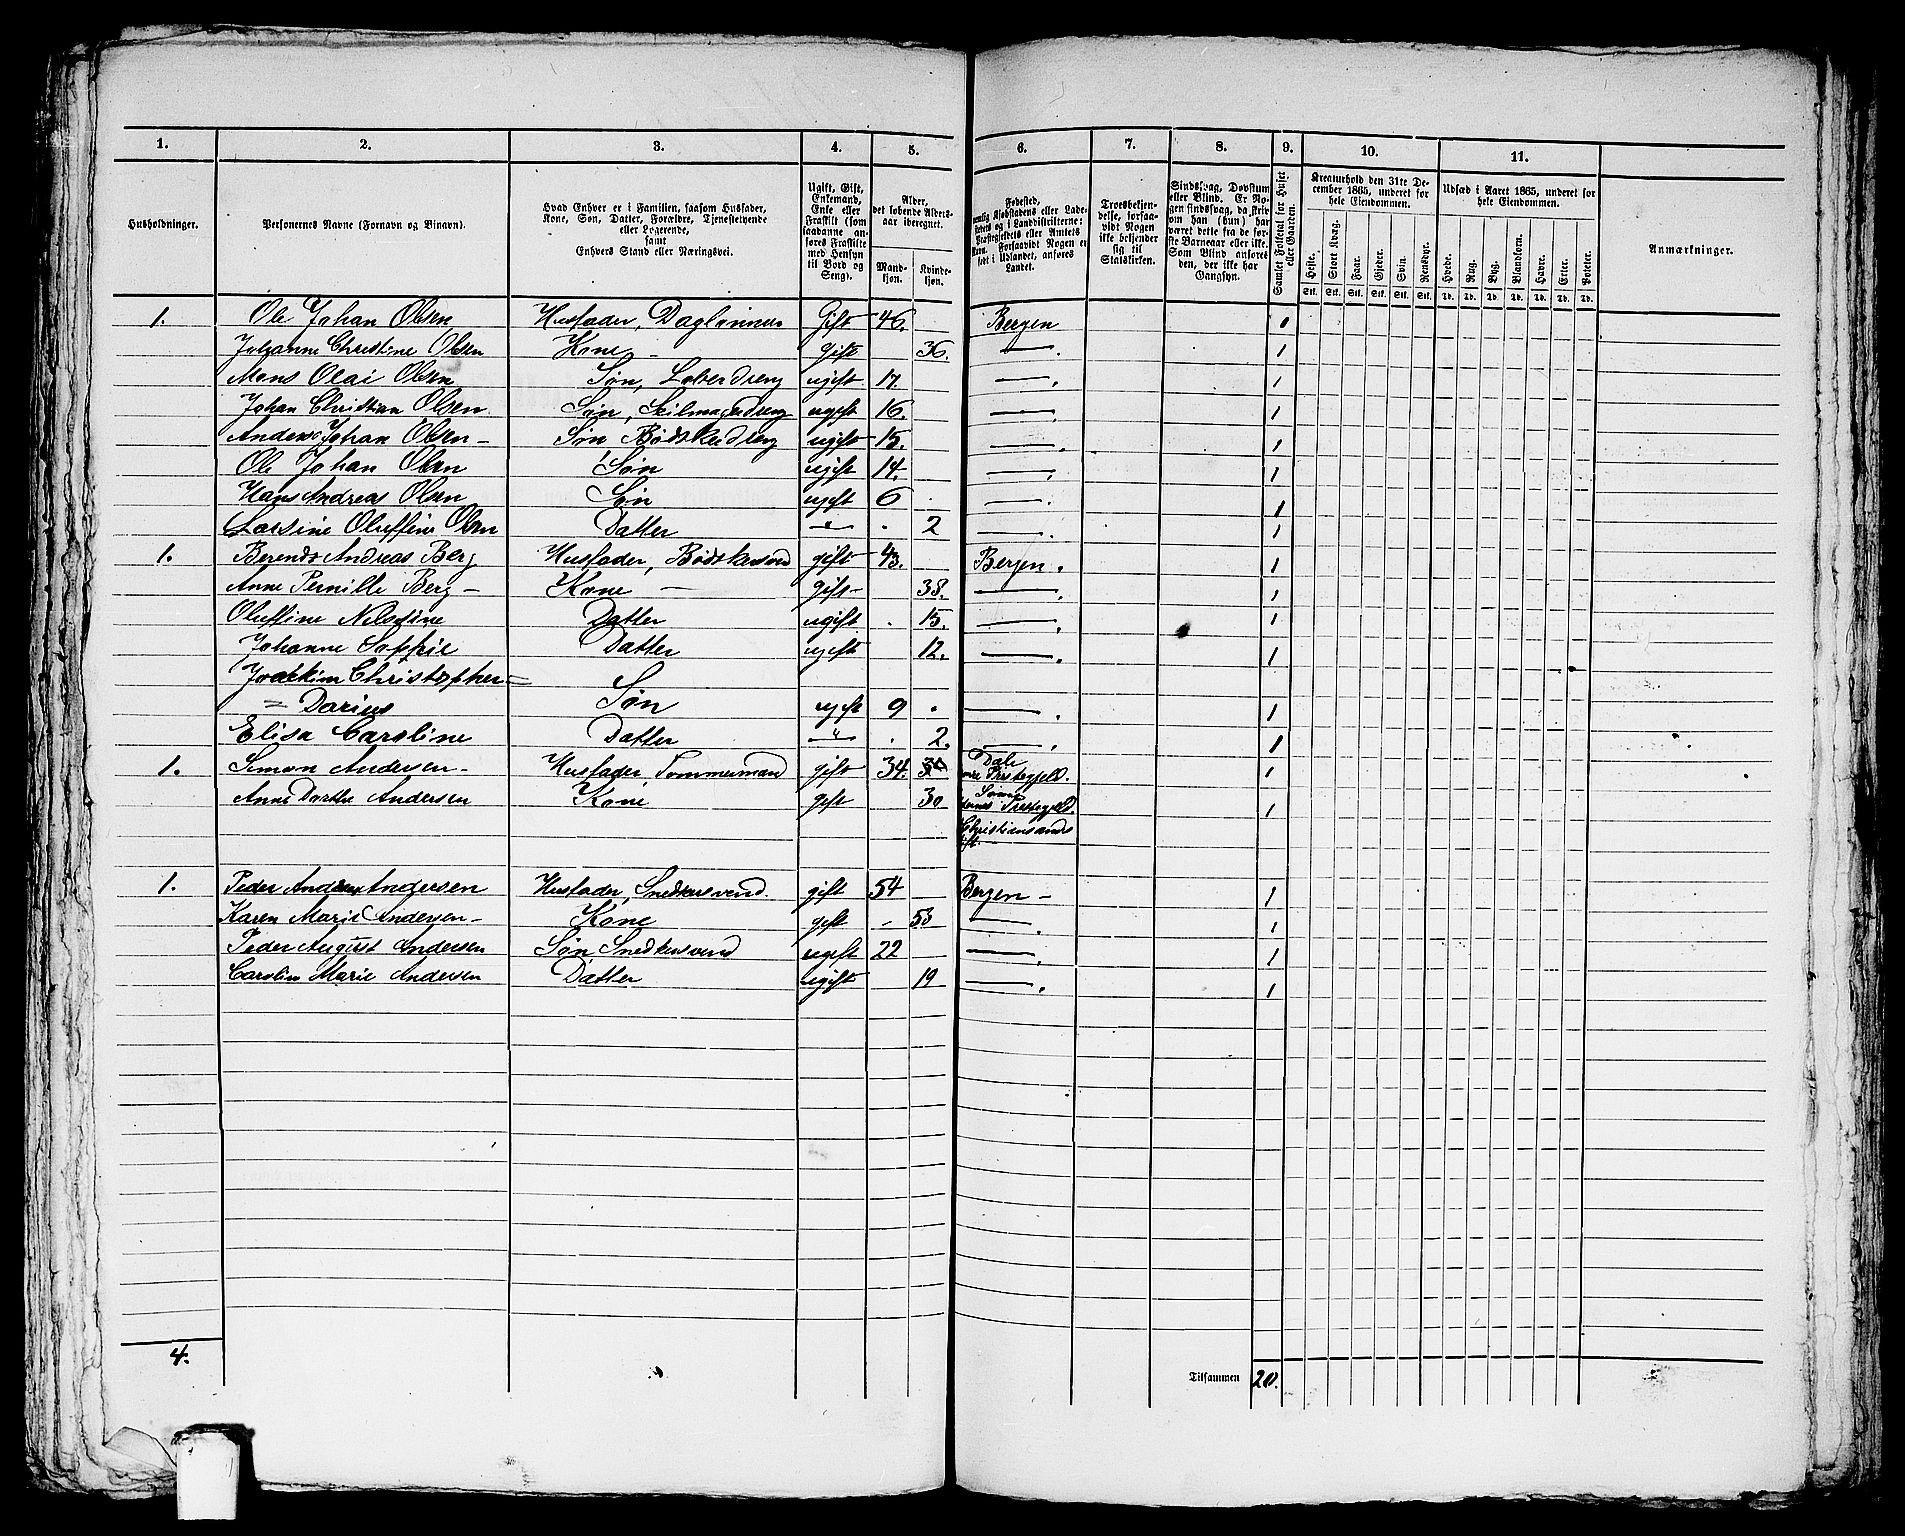 1. 2. 3. 4. 5. 6. 7. 8. 9. 10. 11.
Husholdninger.
Personernes Navne (Fornavn og Binavn).
Hvad Enhver er i Familien, saasom Husfader,
Kone, Søn, Datter, Forældre, Tjenestetyende
eller Logerende,
samt
Enhvers Stand eller Næringsvei.
Ugift, Gift,
Enkemand,
Enke eller
Fraskilt (som
saadanne an-
føres Fraskilte
med Hensyn
til Bord og
Seng).
Alder,
det løbende Alders-
aar iberegnet.
Mand-
kjøn.
Kvinde-
kjøn.
Fødested,
nemlig Kjøbstadens eller Lade-
stedets og i Landdistrikterne:
Præstegjeldets eller Amtets
Navn. Forsaavidt Nogen er
født i Udlandet, anføres
Landet.
Troesbekjen-
delse, forsaa-
vidt Nogen
ikke bekjender
sig til
Statskirken.
Sindssvag, Døvstum
eller Blind. Er No-
gen sindssvag, da skri-
ves om han (hun) har
været dette fra de før-
ste Barneaar eller ikke.
Som Blind anføres
den, der ikke har
Gangsyn.
Samlet Folketal for Huset
eller Gaarden.
Kreaturhold den 31te De-
cember 1865, underet for
hele Eiendommen.
Heste. Stort Kvæg. Faar. Gjeder. Svin. Rensdyr.
Stk. Stk. Stk. Stk. Stk. Stk.
Udsæd i Aaret 1865, underet for
hele Eiendommen.
Hvede. Rug. Byg. Blandkorn. Havre. Erter. Poteter.
Td. Td. Td. Td. Td. Td. Td.
Anmærkninger.
1. Ole Johan Olsen Husfader, Daglønner Gift 46. Bergen 1
Johanne Christine Olsen Kone - gift 36. —. 1
Mons Olai Olsen Søn, Løberdreng ugift 17. —. 1
Johan Christian Olsen Søn, ugift 16. —. 1
Anders Johan Olsen - Søn Bødskerdreng ugift 15. —. 1
Ole Johan Olsen Søn ugift 14. —. 1
Hans Andreas Olsen Søn ugift 6 . —. 1
Larsine Oluffine Olsen Datter —"— . 2 —. 1
1. Berendt Andreas Berg Husfader, Bødskersvend gift 43. Bergen. 1
Anne Pernille Berg - Kone — gift- 38. —. 1
Oluffine Nilsdine Datter ugift . 15. —. 1
Johanne Sophie Datter ugift 12. —. 1
Joackim Christopher =
= Darius Søn ugift 9 . —. 1
Elisa Caroline Datter —"— . 2. —. 1
1. Simon Andersen - Husfader Tømmermand gift 34. Dale
Prestegjeld. 1
Anne Dorthe Andersen Kone gift 30
Prestegjeld. 1
Christiansands
Stift. -
1. Peder Andreas Andersen Husfader, Snedkersvend. gift 54 Bergen - 1
Karen Marie Andersen - Kone gift - 53 —. 1
Peder August Andersen Søn Snedkersvend ugift 22 —. 1
Carolin Marie Andersen Datter ugift 19 —. 1
4. Tilsammen 20.